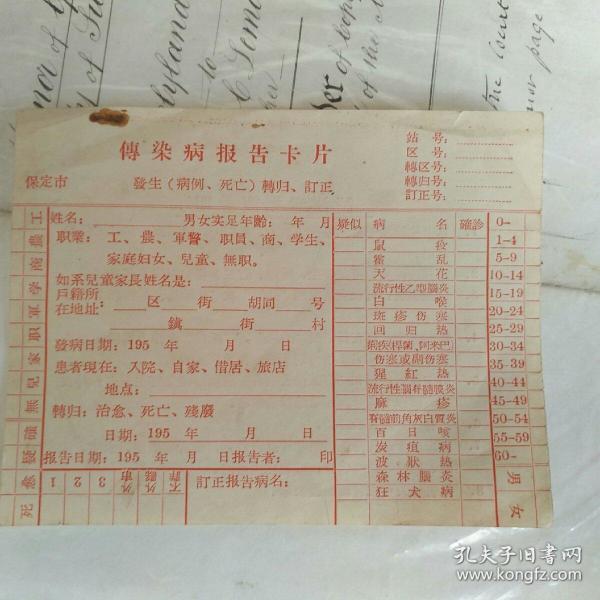 傳染病报告卡片
保定市
發生(病例、死亡)轉归、訂正
站号:
区号:
轉区号:
轉归号:
訂正号:
工
農
商
学
軍
职
家
兒
無
疑
死
姓名: 男女实足年齡: 年 月
职業: 工、農、軍警、职員、商、学生、
家庭妇女、兒童、無职。
如系兒童家長姓名是:
戶籍所
在地址: 区 街 胡同 号
鎮 街 村
發病日期: 195 年 月 日
患者現在: 入院、自家、借居、旅店
地点:
轉归: 治愈、死亡、殘廢
日期: 195 年 月 日
报告日期: 195 年 月 日报告者: 印
1 2 3 外市 外縣 不詳
訂正报告病名:
疑似 病 名 確診
鼠 疫
霍 乱
天 花
流行性乙型腦炎
白 喉
斑疹伤寒
回归热
痢疾(桿菌、阿米巴)
伤寒或副伤寒
猩 紅 热
流行性腦脊髓膜炎
麻 疹
脊髓前角灰白質炎
百 日 咳
炭 疽 病
波 狀 热
森林腦炎
狂 犬 病
0-
1-4
5-9
10-14
15-19
20-24
25-29
30-34
35-39
40-44
45-49
50-54
55-59
60-
男
女
孔夫子旧书网
www.kongfz.com